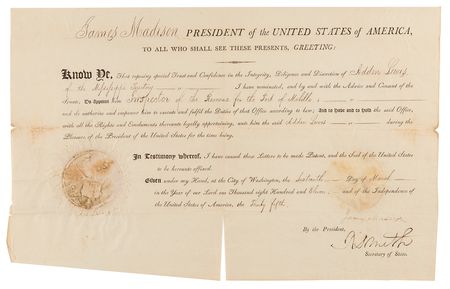 James Madison PRESIDENT of the UNITED STATES of AMERICA,
TO ALL WHO SHALL SEE THESE PRESENTS, GREETING:
Know Ye, That reposing special Trust and Confidence in the Integrity, Diligence and Discretion of Addin Lewis
of the Mississippi Territory I have nominated, and by and with the Advice and Consent of the
Senate, Do Appoint him Inspector of the Revenue for the Port of Mobille,
and do authorize and empower him to execute and fulfil the Duties of that Office according to law; And to have and to hold the said Office,
with all the Rights and Emoluments thereunto legally appertaining, unto him the said Addin Lewis during the
Pleasure of the President of the United States for the time being.
In Testimony whereof, I have caused these Letters to be made Patent, and the Seal of the United States
to be hereunto affixed.
Given under my Hand, at the City of Washington, the Day of March
in the Year of our Lord one thousand eight Hundred and Eleven; and of the Independence
of the United States of America, the Thirty fifth.
James Madison
By the President,
R Smith
Secretary of State.